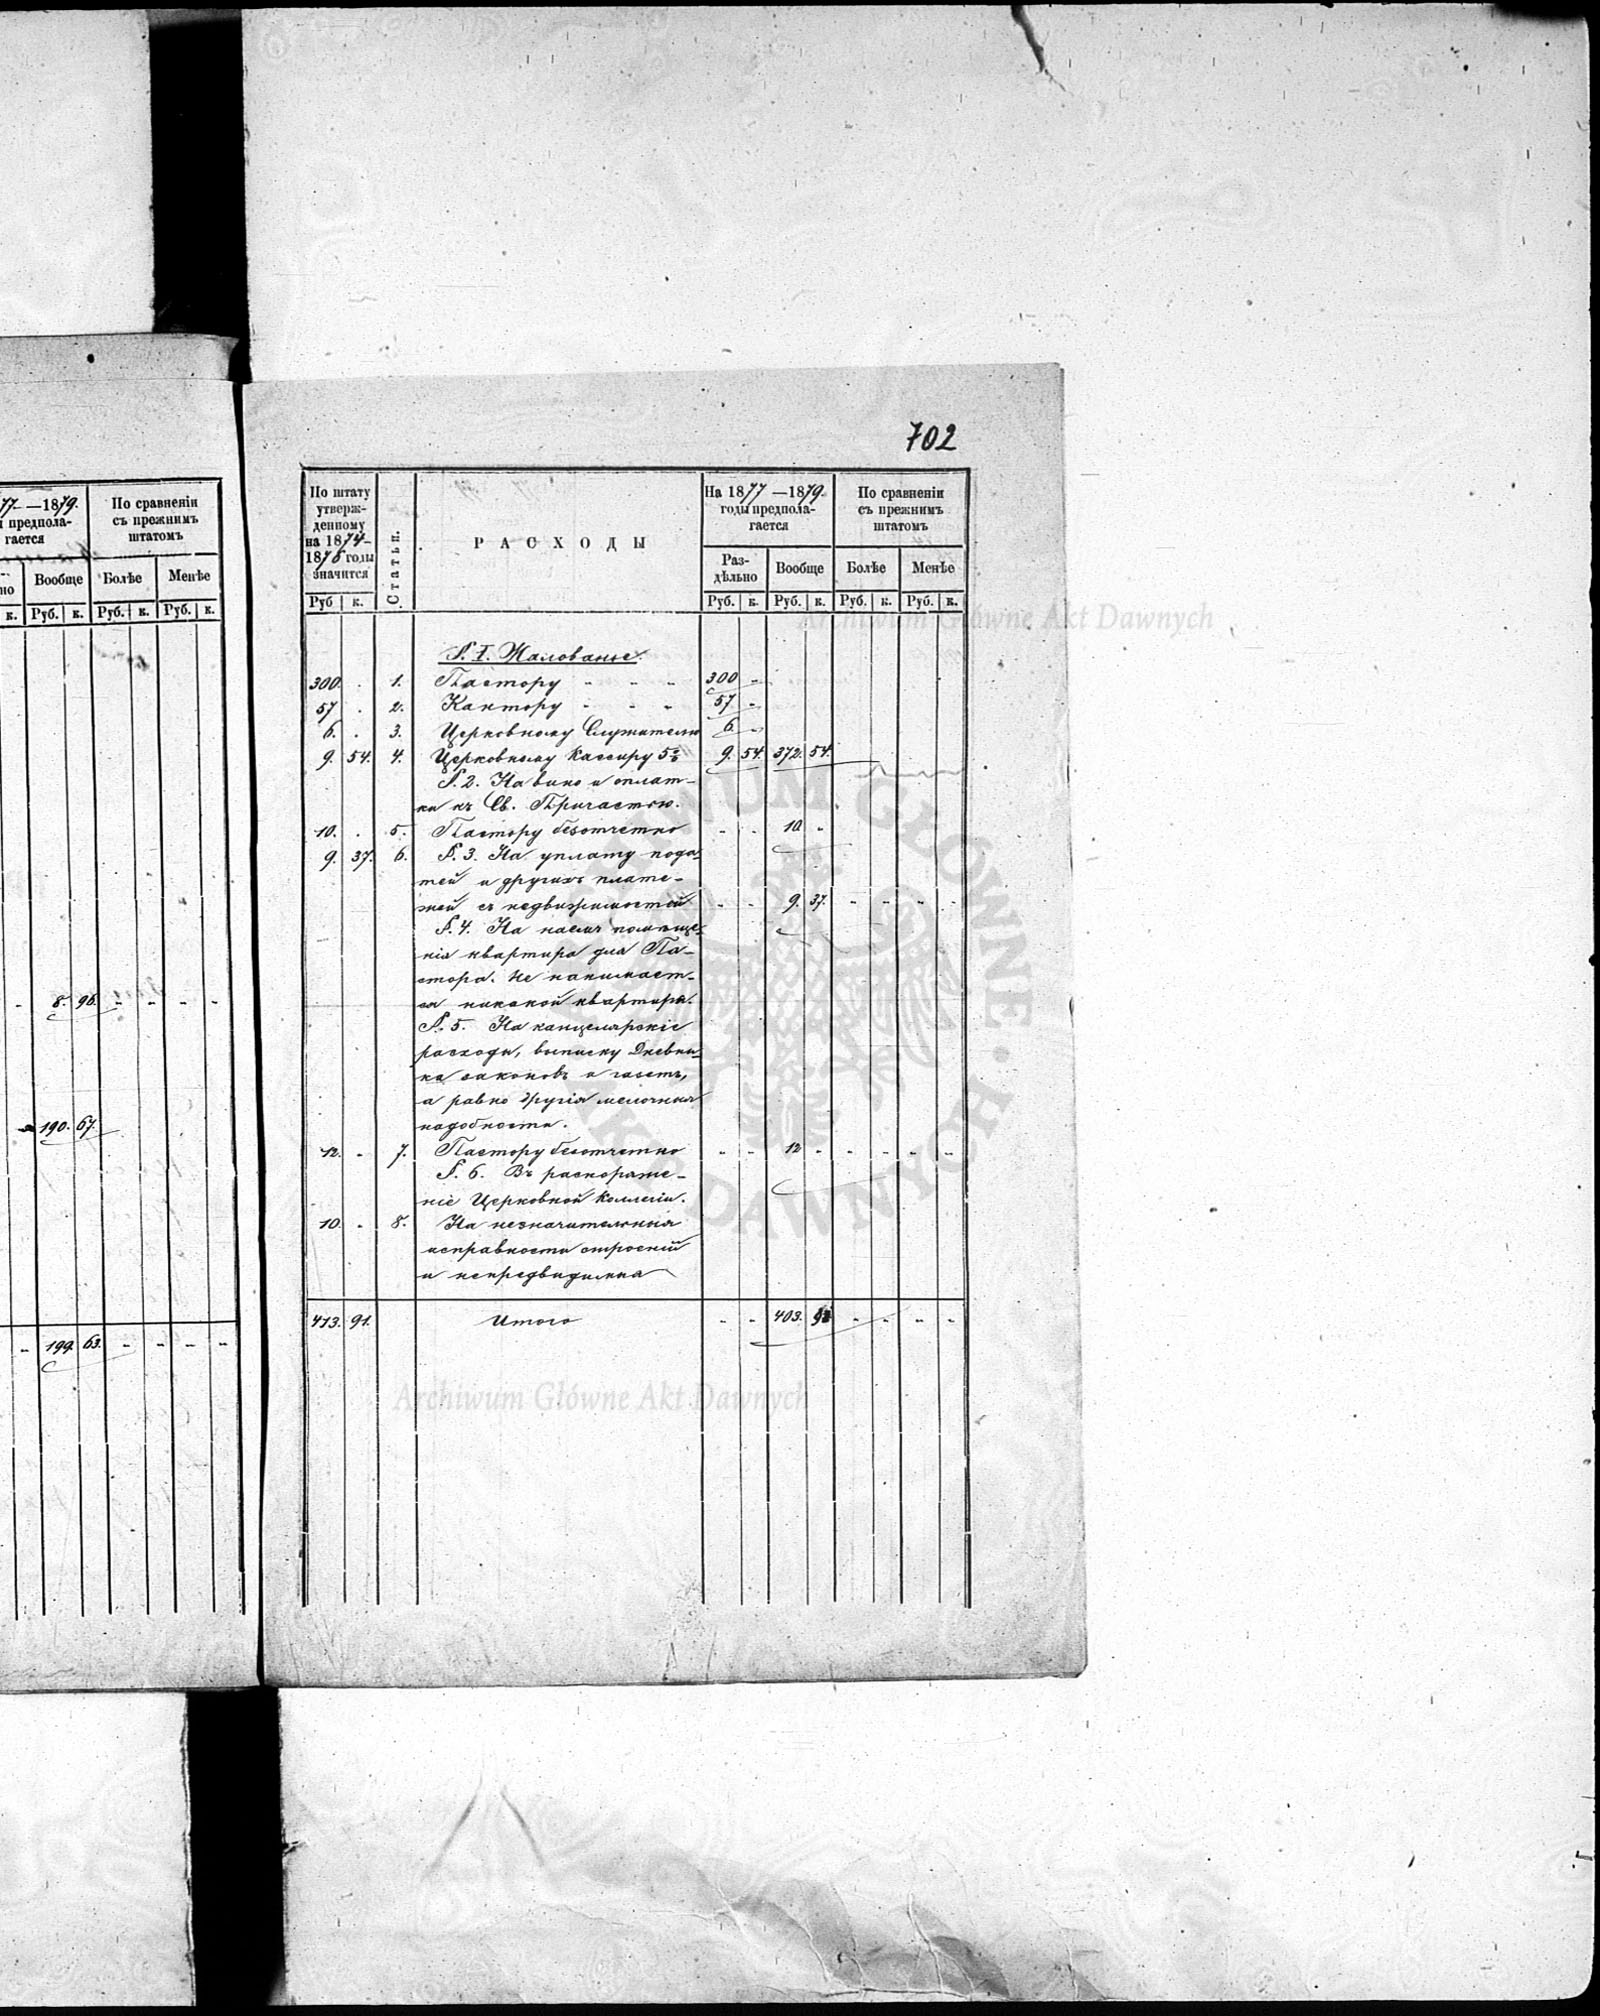 702
77 — 1879.
предпола-
гается
По сравненіи
съ прежнимъ
штатомъ
Вообще
Болѣе
Менѣе
к. Руб. к. Руб. к. Руб. к.
8. 96. - - - -
190. 67.
- 199. 63. - - - -
По штату
утверж-
денному
на 1874-
1876 годы
значится
Статьи.
РАСХОДЫ
На 1877 — 1879.
годы предпола-
гается
По сравненіи
съ прежнимъ
штатомъ
Раз-
дѣльно
Вообще
Болѣе
Менѣе
Руб к. Руб. к. Руб. к. Руб. к. Руб. к.
§. I. Жалованье.
300. . 1. Пастору - - - 300 -
57 . 2. Кантору - - - 57 -
6. . 3. Церковному Служителю 6 -
9. 54. 4. Церковному Кассиру 5% 9. 54. 372. 54.
§. 2. На вино и оплат-
ки къ Св. Причастію.
10. . 5. Пастору безотчетно - - 10 -
9. 37. 6. §. 3. На уплату пода-
тей и другихъ плате-
жей съ недвижимостей - - 9. 37. - - - -
§. 4. На наемъ помѣще-
нія квартира для Па-
стора. Не нанимает-
ся никакой квартиры.
§. 5. На канцелярскіе
расходы, выписку Дневни-
ка законовъ и газетъ,
а равно другія мелочныя
надобности.
12. - 7. Пастору безотчетно - - 12 - - - - -
§. 6. Въ распоряже-
ніе Церковной Коллегіи.
10. - 8. На незначительныя
исправности строеній
и непредвидимыя
413. 91. Итого - - 403. - - - -
Archiwum Główne Akt Dawnych
Archiwum Główne Akt Dawnych